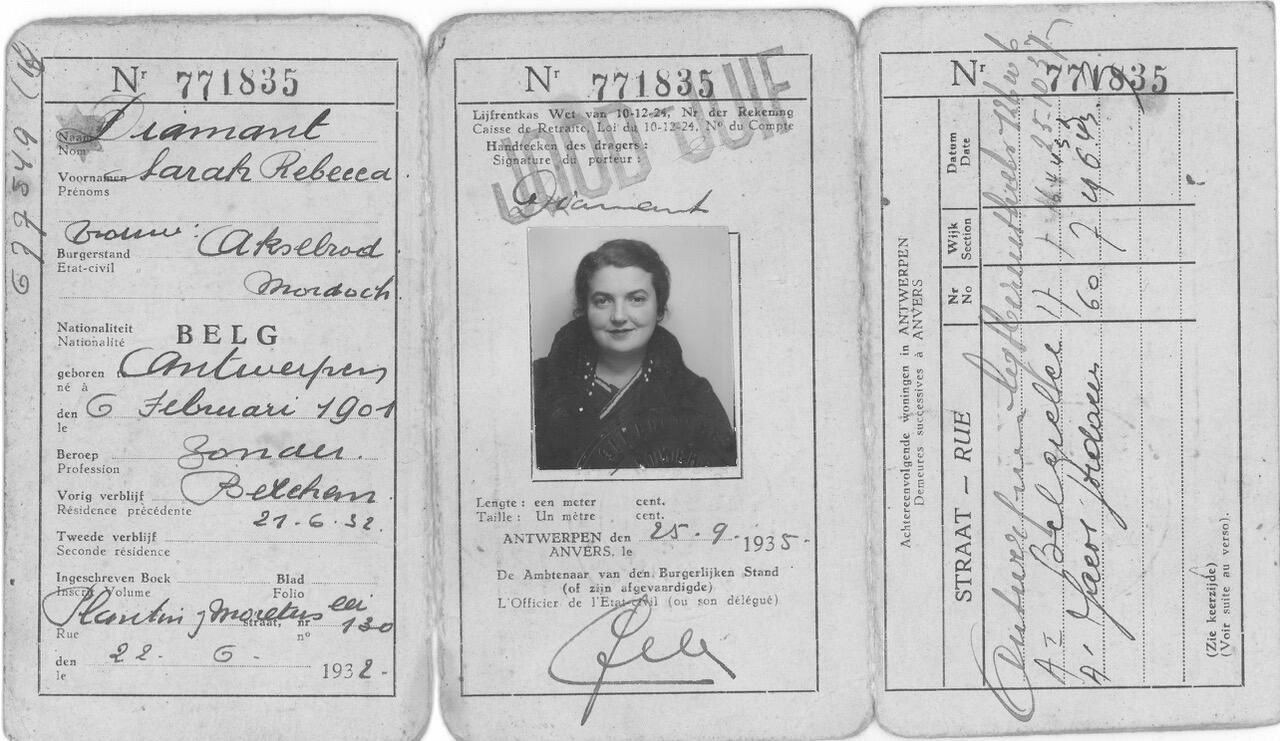 677549
Nr 771835
Naam Diamant
Nom
Voornamen Sarah Rebecca
Prénoms
vrouw
Burgerstand Akselrod
Etat-civil
Mordoch
Nationaliteit BELG
Nationalité
geboren t Antwerpen
né à
den 6 Februari 1901
le
Beroep Zonder.
Profession
Vorig verblijf Berchem
Résidence précédente 21.6.32.
Tweede verblijf
Seconde résidence
Ingeschreven Boek Blad
Inscrit Volume Folio
Plantin j Moretus lei
straat, nr 130
Rue nº
den 22 - 6 - 1932-
le
Nr 771835
Lijfrentkas Wet van 10-12-24, Nr der Rekening
Caisse de Retraite, Loi du 10-12-24, Nº du Compte
Handteeken des dragers :
Signature du porteur :
JOOD-JUIF
Diamant
Lengte : een meter cent.
Taille : Un mètre cent.
ANTWERPEN den 25 - 9 - 1935-
ANVERS, le
De Ambtenaar van den Burgerlijken Stand
(of zijn afgevaardigde)
L'Officier de l'Etat-civil (ou son délégué)
Nr 771835
Achtereenvolgende woningen in ANTWERPEN
Demeures successives à ANVERS
STRAAT — RUE
Nr Wijk Datum
No Section Date
25.10.37
Belgielei
Jacob Jordaens 60 7
(Zie keerzijde)
(Voir suite au verso).